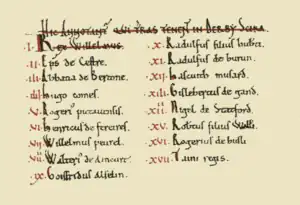 HIC ANNOTANT TENENTES TRAS IN DERBY SCIRE
.I. Rex Willelmus.
.II. Eps de Cestre.
.III. Abbatia de Bertone.
.IIII. Hugo comes.
.V. Rogerius pictauensis.
.VI. Henricus de fereires.
.VII. Willelmus peurel.
.VIII. Walterus de Aincurt.
.IX. Goisfridus Alselin.
.X. Radulfus filius hubti.
.XI. Radulfus de burun.
.XII. Hascuith musard.
.XIII. Gislebertus de gand.
.XIIII. Nigel de Statford.
.XV. Robtus filius Willi.
.XVI. Rogerius de busli
.XVII. Taini regis.